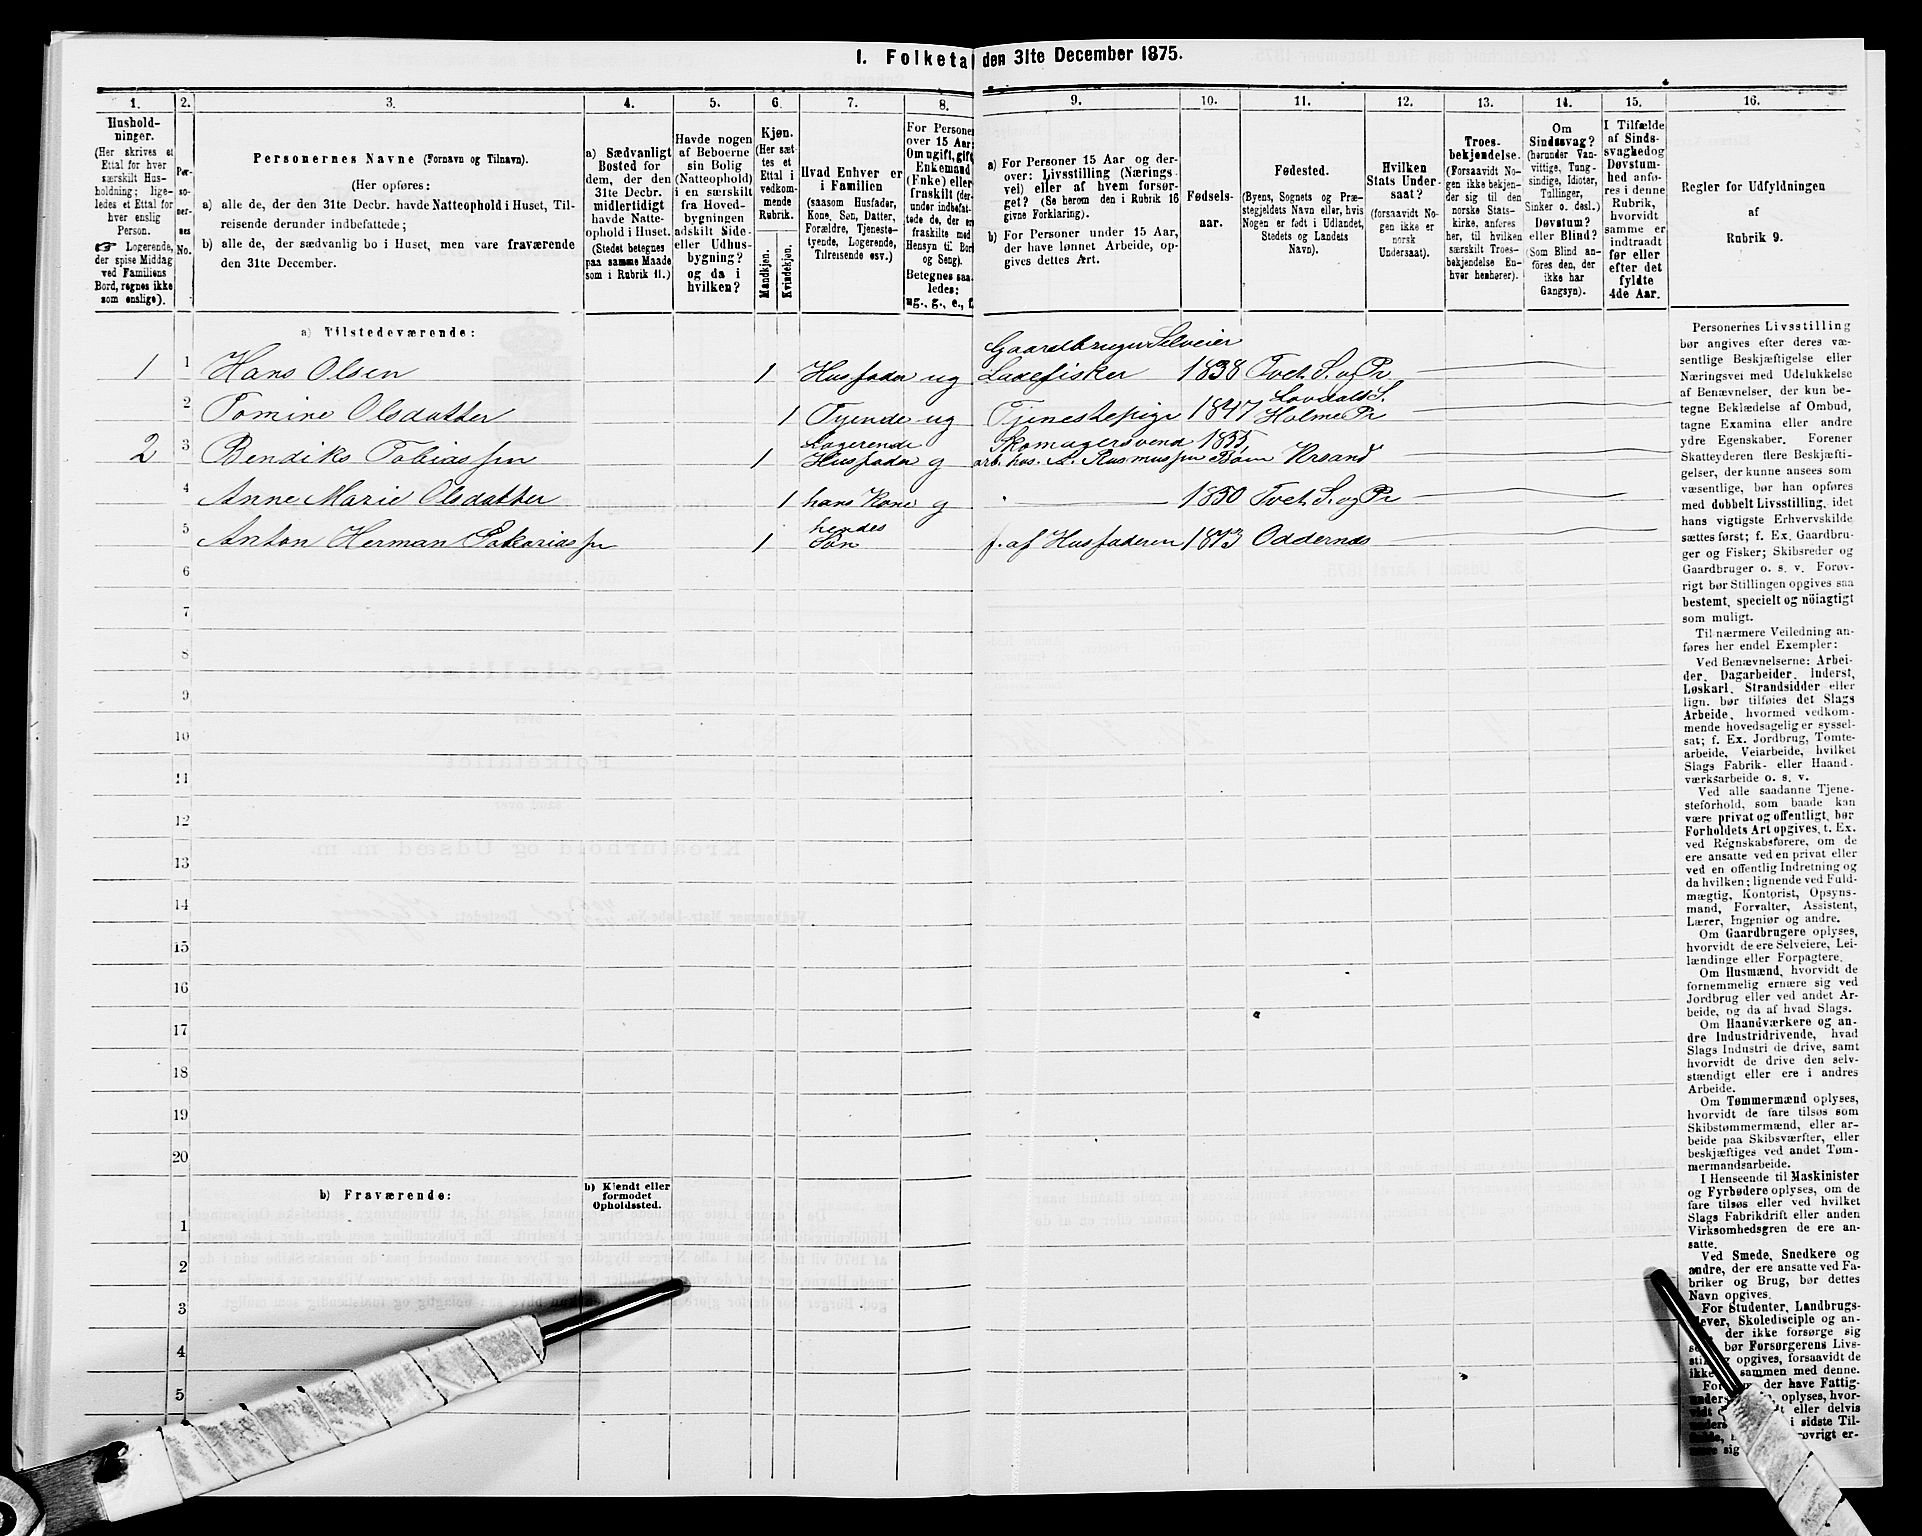 I. Folketal den 31te December 1875.
1.
2.
3.
4.
5.
6.
7.
8.
9.
10.
11.
12.
13.
14.
15.
16.
Hushold-
ninger.
(Her skrives et
Ettal for hver
særskilt Hus-
holdning; lige-
ledes et Ettal for
hver enslig
Person.
☞ Logerende,
der spise Middag
ved Familiens
Bord, regnes ikke
som enslige).
Per-
so-
ner-
nes
No.
Personernes Navne (Fornavn og Tilnavn).
(Her opføres:
a) alle de, der den 31te Decbr. havde Natteophold i Huset, Til-
reisende derunder indbefattede;
b) alle de, der sædvanlig bo i Huset, men vare fraværende
den 31te December.
a) Sædvanligt
Bosted for
dem, der den
31te Decbr.
midlertidigt
havde Natte-
ophold i Huset.
(Stedet betegnes
paa samme Maade
som i Rubrik 11.)
Havde nogen
af Beboerne
sin Bolig
(Natteophold)
i en særskilt
fra Hoved-
bygningen
adskilt Side-
eller Udhus-
bygning?
og da i
hvilken?
Kjøn.
(Her sæt-
tes et
Ettal i
vedkom-
mende
Rubrik.
Mandkjøn.
Kvindekjøn.
Hvad Enhver er
i Familien
(saasom Husfader,
Kone, Søn, Datter,
Forældre, Tjeneste-
tyende, Logerende,
Tilreisende osv.)
For Personer
over 15 Aar:
Om ugift, gift,
Enkemand
(Enke) eller
fraskilt (der-
under indbefat-
tede de, der ere
fraskilte med
Hensyn til Bord
og Seng).
Betegnes saa-
ledes:
ug., g., e., f.
a) For Personer 15 Aar og der-
over: Livsstilling (Nærings-
vei) eller af hvem forsør-
get? (Se herom den i Rubrik 16
givne Forklaring).
b) For Personer under 15 Aar,
der have lønnet Arbeide, op-
gives dettes Art.
Fødsels-
aar.
Fødested.
(Byens, Sognets og Præ-
stegjeldets Navn eller, hvis
Nogen er født i Udlandet,
Stedets og Landets
Navn).
Hvilken
Stats Under-
saat?
(forsaavidt No-
gen ikke er
norsk
Undersaat).
Troes-
bekjendelse.
(Forsaavidt No-
gen ikke bekjen-
der sig til den
norske Stats-
kirke, anføres
her, til hvilken
særskilt Troes-
bekjendelse En-
hver henhører).
Om
Sindssvag?
(herunder Van-
vittige, Tung-
sindige, Idioter,
Tullinger,
Sinker o. desl.)
Døvstum?
eller Blind?
(Som Blind an-
føres den, der
ikke har
Gangsyn).
I Tilfælde
af Sinds-
svaghed og
Døvstum-
hed anfø-
res i denne
Rubrik,
hvorvidt
samme er
indtraadt
før eller
efter det
fyldte
4de Aar.
Regler for Udfyldningen
af
Rubrik 9.
a) Tilstedeværende:
Gaardbruger Selveier
1 1 Hans Olsen 1 Husfader ug Laxefisker 1838 Tvet S. og Pr
Lovdals S.
2 Tomine Olsdatter 1 Tyende ug Tjenestepige 1847 Holme Pr
Logerende Skomagersvend 1855
2 3 Bendiks Tobiassen 1 Husfader g arb. hos. A. Rasmussen Krsand
4 Anne Marie Olsdatter 1 hans Kone g 1850 Tvet S. og Pr
hendes
5 Anton Herman 1 Søn f. af Husfaderen 1873 Oddernæs
6
7
8
9
10
11
12
13
14
15
16
17
18
19
20
b) Fraværende:
b) Kjendt eller
formodet
Opholdssted.
1
2
3
4
5
Personernes Livsstilling
bør angives efter deres væ-
sentlige Beskjæftigelse eller
Næringsvei med Udelukkelse
af Benævnelser, der kun be-
tegne Beklædelse af Ombud,
tagne Examina eller andre
ydre Egenskaber. Forener
Skatteyderen flere Beskjæfti-
gelser, der kunne ansees som
væsentlige, bør han opføres
med dobbelt Livsstilling, idet
hans vigtigste Erhvervskilde
sættes først; f. Ex. Gaardbru-
ger og Fisker; Skibsreder og
Gaardbruger o. s. v. Forøv-
rigt bør Stillingen opgives saa
bestemt, specielt og nöiagtigt
som muligt.
Til nærmere Veiledning an-
føres her endel Exempler:
Ved Benævnelserne: Arbei-
der, Dagarbeider, Inderst,
Løskarl, Strandsidder eller
lign. bør tilføies det Slags
Arbeide, hvormed vedkom-
mende hovedsagelig er syssel-
sat; f. Ex. Jordbrug, Tomte-
arbeide, Veiarbeide, hvilket
Slags Fabrik- eller Haand-
værksarbeide o. s. v.
Ved alle saadanne Tjene-
steforhold, som baade kan
være privat og offentligt, bør
Forholdets Art opgives, t. Ex.
ved Regnskabsførere, om de
ere ansatte ved en privat eller
ved en offentlig Indretning og
da hvilken; lignende ved Fuld-
mægtig, Kontorist, Opsyns-
mand, Forvalter, Assistent,
Lærer, Ingeniør og andre.
Om Gaardbrugere oplyses,
hvorvidt de ere Selveiere, Lei-
lændinge eller Forpagtere.
Om Husmænd, hvorvidt de
fornemmelig ernære sig ved
Jordbrug eller ved andet Ar-
beide, og da af hvad Slags.
Om Haandværkere og an-
dre Industridrivende, hvad
Slags Industri de drive, samt
hvorvidt de drive den selv-
stændigt eller ere i andres
Arbeide.
Om Tømmermænd oplyses,
hvorvidt de fare tilsøs som
Skibstømmermænd, eller ar-
beide paa Skibsværfter, eller
beskjæftiges ved andet Tøm-
mermandsarbeide.
I Henseende til Maskinister
og Fyrbødere oplyses, om de
fare tilsøs eller ved hvilket
Slags Fabrikdrift eller anden
Virksomhedsgren de ere an-
satte.
Ved Smede, Snedkere og
andre, der ere ansatte ved Fa-
briker og Brug, bør dettes
Navn opgives.
For Studenter, Landbrugs-
elever, Skoledisciple og an-
der ikke forsørge sig
bør Forsørgerens Livs-
opgives, forsaavidt de
ikke sammen med denne.
der have Fattig-
oplyses, hvor-
eller delvis
i sidste Til-